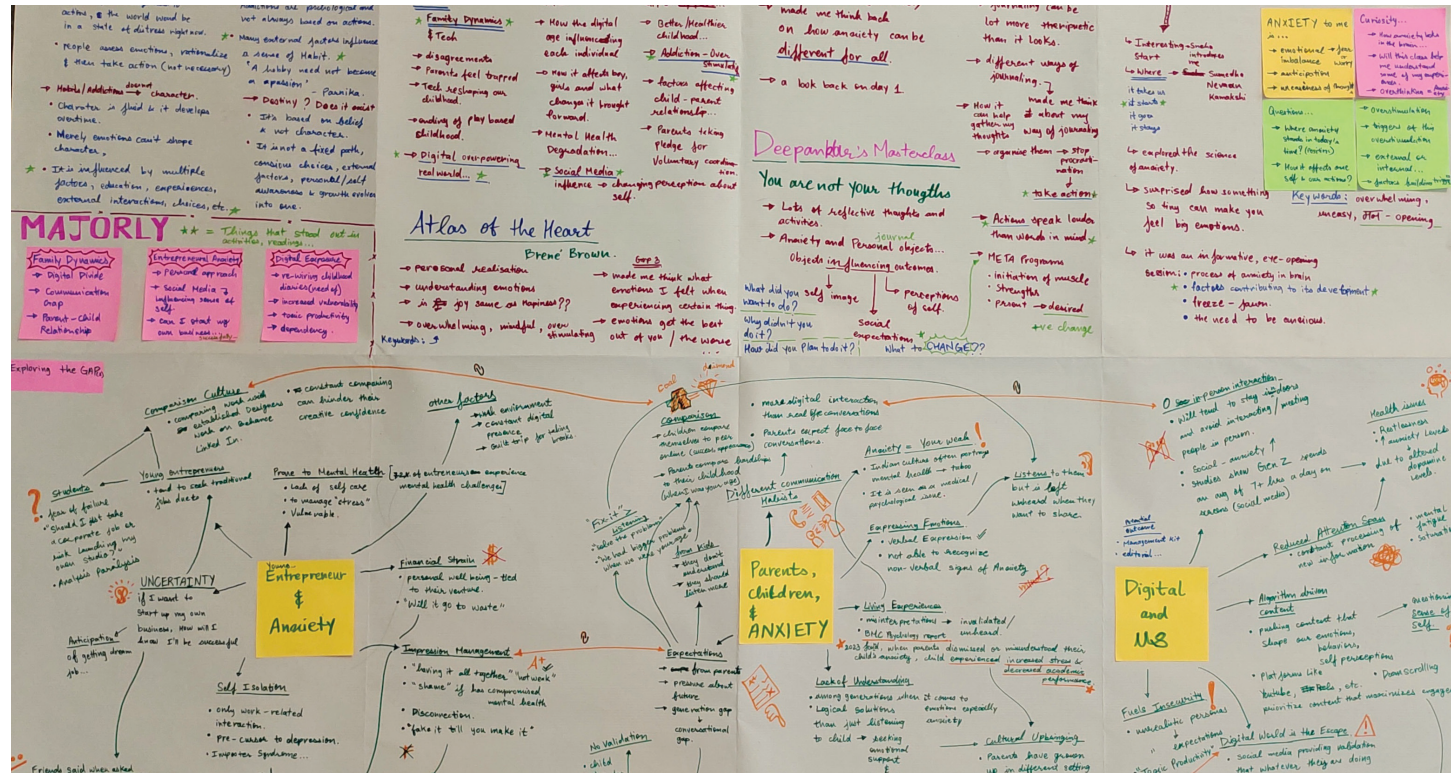 action, & the world would be
in a state of distress right now.
• People assess emotions, rationalise
& then take action (not necessary)
→ Habits/Addictions doesnot → character.
• Charater is fluid & it develops
overtime.
• Merely emotions can't shape
character,
• It is influenced by multiple
factors, education, experiences,
external interactions, choices, etc.
Addictions are psychological and
not always based on actions.
• Many external factors influence
a sense of Habit.
"A hobby need not become
a passion" - Parnika.
→ Destiny? Does it exist
• It's based on belief
& not character.
• It is not a fixed path,
conscious choices, external
factors, personal/self
awareness & growth evolves
into one.
MAJORLY
★★ = Things that stood out in
activities, readings...
Family Dynamics
→ Digital Divide
→ Communication
Gap
→ Parent-Child
Relationship
Entrepreneurial Anxiety
→ Personal approach
→ Social Media →
influencing sense of
self.
→ can I start my
own business...
successfully
Digital Exposure
→ re-wiring childhood
diaries (need of)
→ increased vulnerability
→ toxic productivity
→ dependency.
Family Dynamics
& Tech
→ disagreements
→ Parents feel trapped
→ Tech reshaping our
childhood.
→ ending of play based
childhood.
→ Digital overpowering
real world...
→ How the digital
age influencing
each individual
→ How it affects boy,
girls and what
changes it brought
forward.
→ Mental Health
Degradation...
→ Social Media
influence → changing perception about
self.
→ Better/Healthier
childhood...
→ Addiction - Over
Stimulated
→ factors affecting
child-parent
relationship...
→ Parents taking
pledge for
Voluntary coordina-
tion.
Atlas of the Heart
Brené Brown.
→ perosonal realisation
→ understanding emotions
→ is joy same as hapiness??
→ overwhelming, mindful, over
stimulating
Keywords:
Gap 3
→ made me think what
emotions I felt when
experiencing certain thing.
→ emotions get the best
out of you / the worse
...
→ made me think back
on how anxiety can be
different for all.
→ a look back on day 1
Deepankar's Masterclass
You are not your thougths
→ Lots of reflective thoughts and
activities.
journal
→ Anxiety and Personal objects...
Objects influencing outcomes.
self image
social
expectations
perceptions
of self.
What did you
want to do?
Why didn't you
do it?
How did you plan to do it?
What to CHANGE??
journaling can be
lot more theripuetic
than it looks.
→ different ways of
journaling.
→ How it
can help
gather my
thoughts
made me think
about my
way of journaling
→ organise them → stop
procrast-
nation
take action
→ Actions speak louder
than words in mind
→ META Programs
• initiation of muscle
• Strengths
• Present → desired
+ve change
↳ Interesting
Start
↳ Where
it takes us
it starts
it goes
it stays
Sneha
introduce
Sumedha
Nemain
Kamakshi
↳ explored the science
of anxiety.
↳ surprised how something
so tiny can make you
feel big emotions.
↳ it was an informative, eye-opening
session: • process of anxiety in brain
• factors contributing to its development
• freeze - fawn.
• the need to be anxious.
ANXIETY to me
is...
→ emotional
imbalance
→ fear
or
worry
→ anticipation
→ unawareness of thought
Curiosity...
→ How anxiety looks
in the brain...
→ Will this class help
me understand
some of my experi-
ences...
→ overthinking
Questions...
→ Where anxiety
stands in today's
time?
→ How it affects one
self & our actions?
→ overstimulation
→ triggers of this
overstimulation
→ external or
internal...
→ factors building
Keywords: overwhelming,
uneasy, - opening
Exploring the GAPs
Comparison Culture
• comparing work with
established Designers
work on Behance
Linked In.
• constant comparing
can hinder their
creative confidence
other factors
→ work environment
→ constant digital
presence
→ Guilt trip for taking
breaks.
Young entrepreneurs
• tend to seek traditional
jobs due to
Students
• fear of failure
• "Should I just take
a corporate job or
risk launching my
own studio?"
• Analysis Paralysis
Prone to Mental Health
[72% of entreneurs experience
mental health challenges]
• Lack of self care
• to manage "stress"
• Vulnerable.
UNCERTAINTY
if I want to
start up my own
business, How will I
know I'll be successful
Anticipation
of getting dream
job...
Young
Entrepreneur
&
Anxiety
Financial Strain
• personal well being - tied
to their venture.
• "Will it go to waste"
Impression Management
• "having it all together"
A+
• "shame" if has compromised
mental health
• Disconnection.
• "fake it till you make it"
Self Isolation
• only work-related
interaction.
• Pre-cursor to depression.
• Imposter Syndrome...
Friends said when asked
Coal
diamond
comparison
→ children compare
themselves to peer
online (success, appearance)
→ Parents compare hardships
to their childhood
(when I was your age)
"Fix-it"
Listening
"solve the problem"
"We had bigger problems
when we were your age"
from Kids
→ they don't
understand
→ they should
listen more
Expectations
→ from parents
→ pressure about
future
→ generation gap
↳ conversational
gap.
No Validation
→ child
• more digital interaction
than real life conversations
• Parents expect face to face
conversations.
Different communication
Habits
Anxiety = You're weak!
• Indian culture often portrays
mental health → taboo
• It is seen as a medical/
psychological issue.
Expressing Emotions
• Verbal Expression
• not able to recognize
non-verbal signs of Anxiety
Listens to them
but is left
unheard when they
want to share.
Parents,
children,
&
ANXIETY
Living Experiences
• misinterpretations → invalidated/
unheard.
• BMC Psychology report
2023 found, when parents dismissed or misunderstood their
child's anxiety, child experienced increased stress &
decreased academic
performance
Lack of Understanding
• among generations when it comes to
emotions especially
anxiety
• Logical solutions
than just listening
to child → seeking
emotional
support
&
Cultural Upbringing
• Parents have grown
up in different setting
0 in-person interaction
• Will tend to stay indoors
and avoid interacting/meeting
people in person.
• Social-anxiety ↑
• Studies show Gen Z spends
an avg of 7+ hrs a day on
screens (social media)
Health issues
• Restlessness
• ↑ anxiety levels
due to altered
dopamine
levels.
Potential
outcome
• Management kit
• editorial...
Reduced Attention Span
• constant processing of
new information
• mental
fatigue
Digital
and
US
Algorithm driven
content
• pushing content that
shape our emotions,
behaviors,
self perceptions
• Platforms like
Youtube, Reels, etc.
prioritize content that maximises
Questioning
sense of
self.
• Doomscrolling
Fuels Insecurity!
• unrealistic personas
" expectations
• "Toxic Productivity"
Digital World is the Escape
• social media providing validation
that whatever they are doing